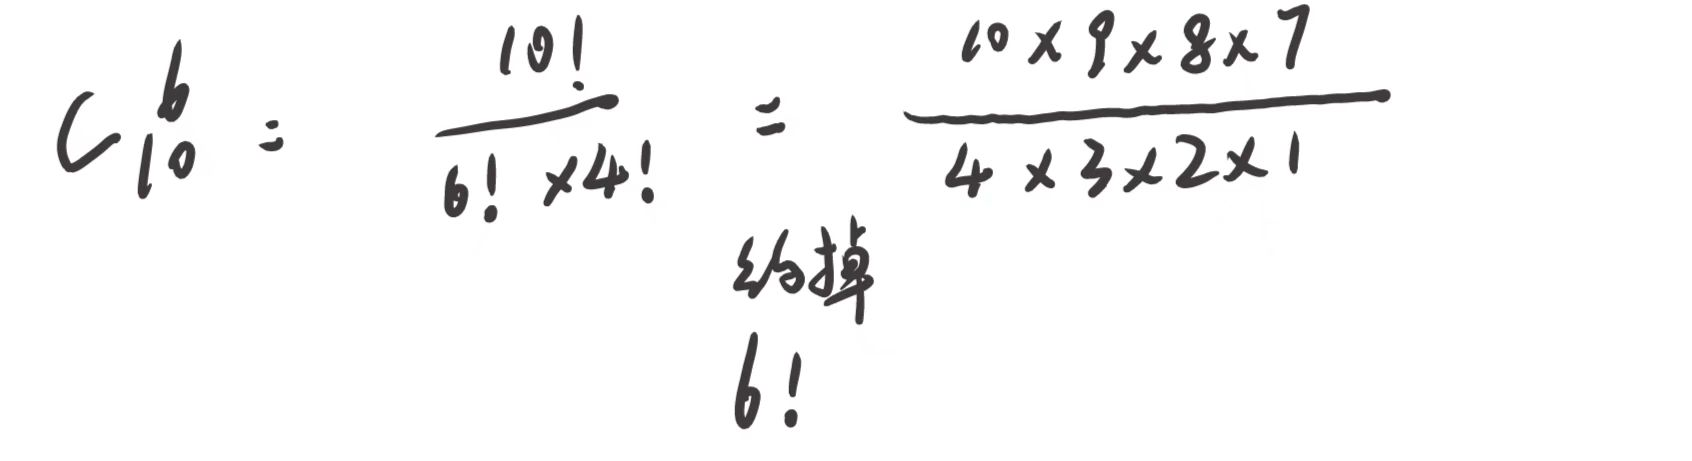 C₁₀⁶ = 10! / (6! × 4!) = (10 × 9 × 8 × 7) / (4 × 3 × 2 × 1)
约掉
6!